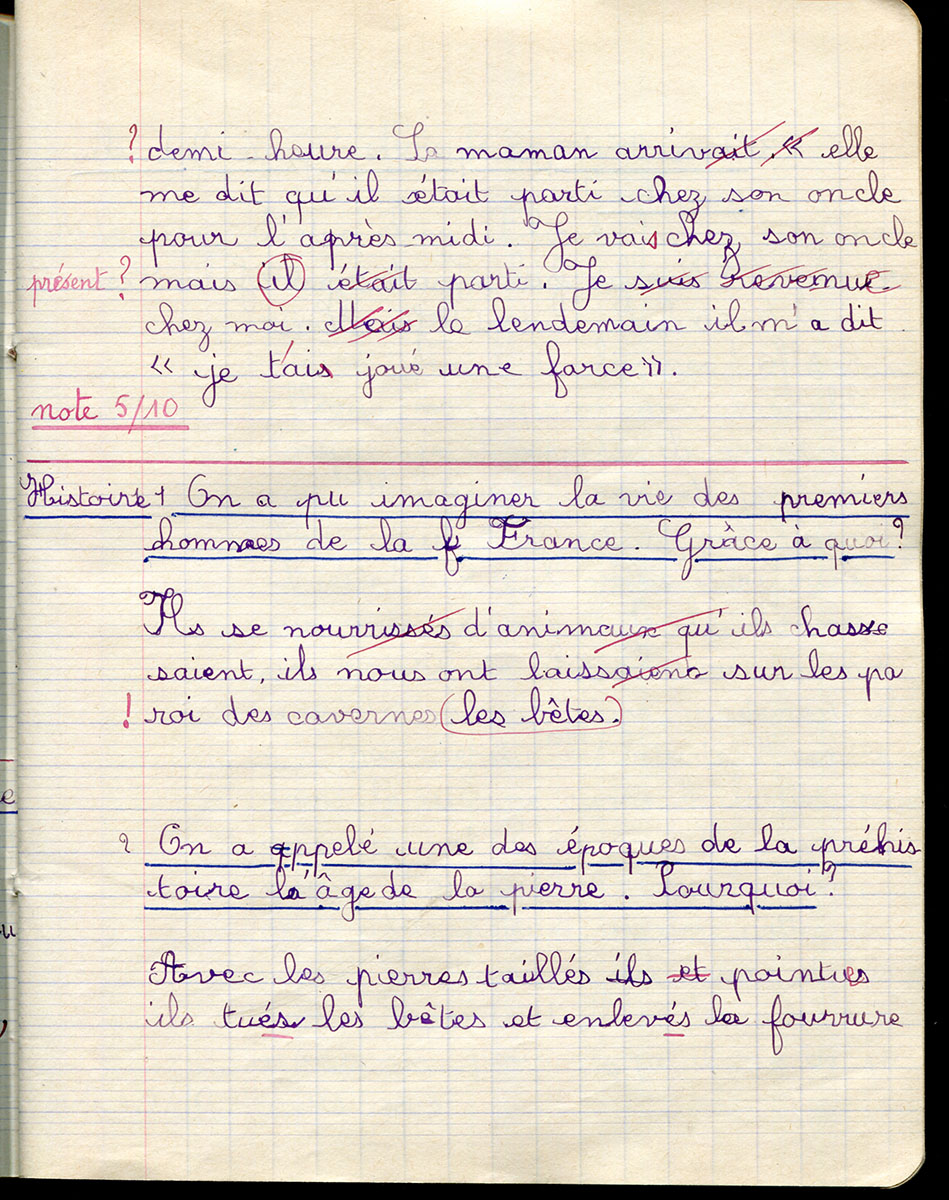 ? demi-heure. Sa maman arrivait, « elle
me dit qu'il était parti chez son oncle
pour l'après midi. Je vais chez son oncle
présent ? mais il était parti. Je suis Revenue
chez moi. Mais le lendemain il m'a dit
« je t'ais joué une farce ».
note 5/10
Histoire 1 On a pu imaginer la vie des premiers
hommes de la f France. Grâce à quoi?
Ils se nourrissés d'animeaux qu'ils chasse
saient, ils nous ont laissaient sur les pa
! roi des cavernes (les bêtes.)
2 On a appelé une des époques de la préhis
toire l'âge de la pierre. Pourquoi?
Avec les pierres taillés ils et pointues
ils tués les bêtes et enlevés la fourrure
e